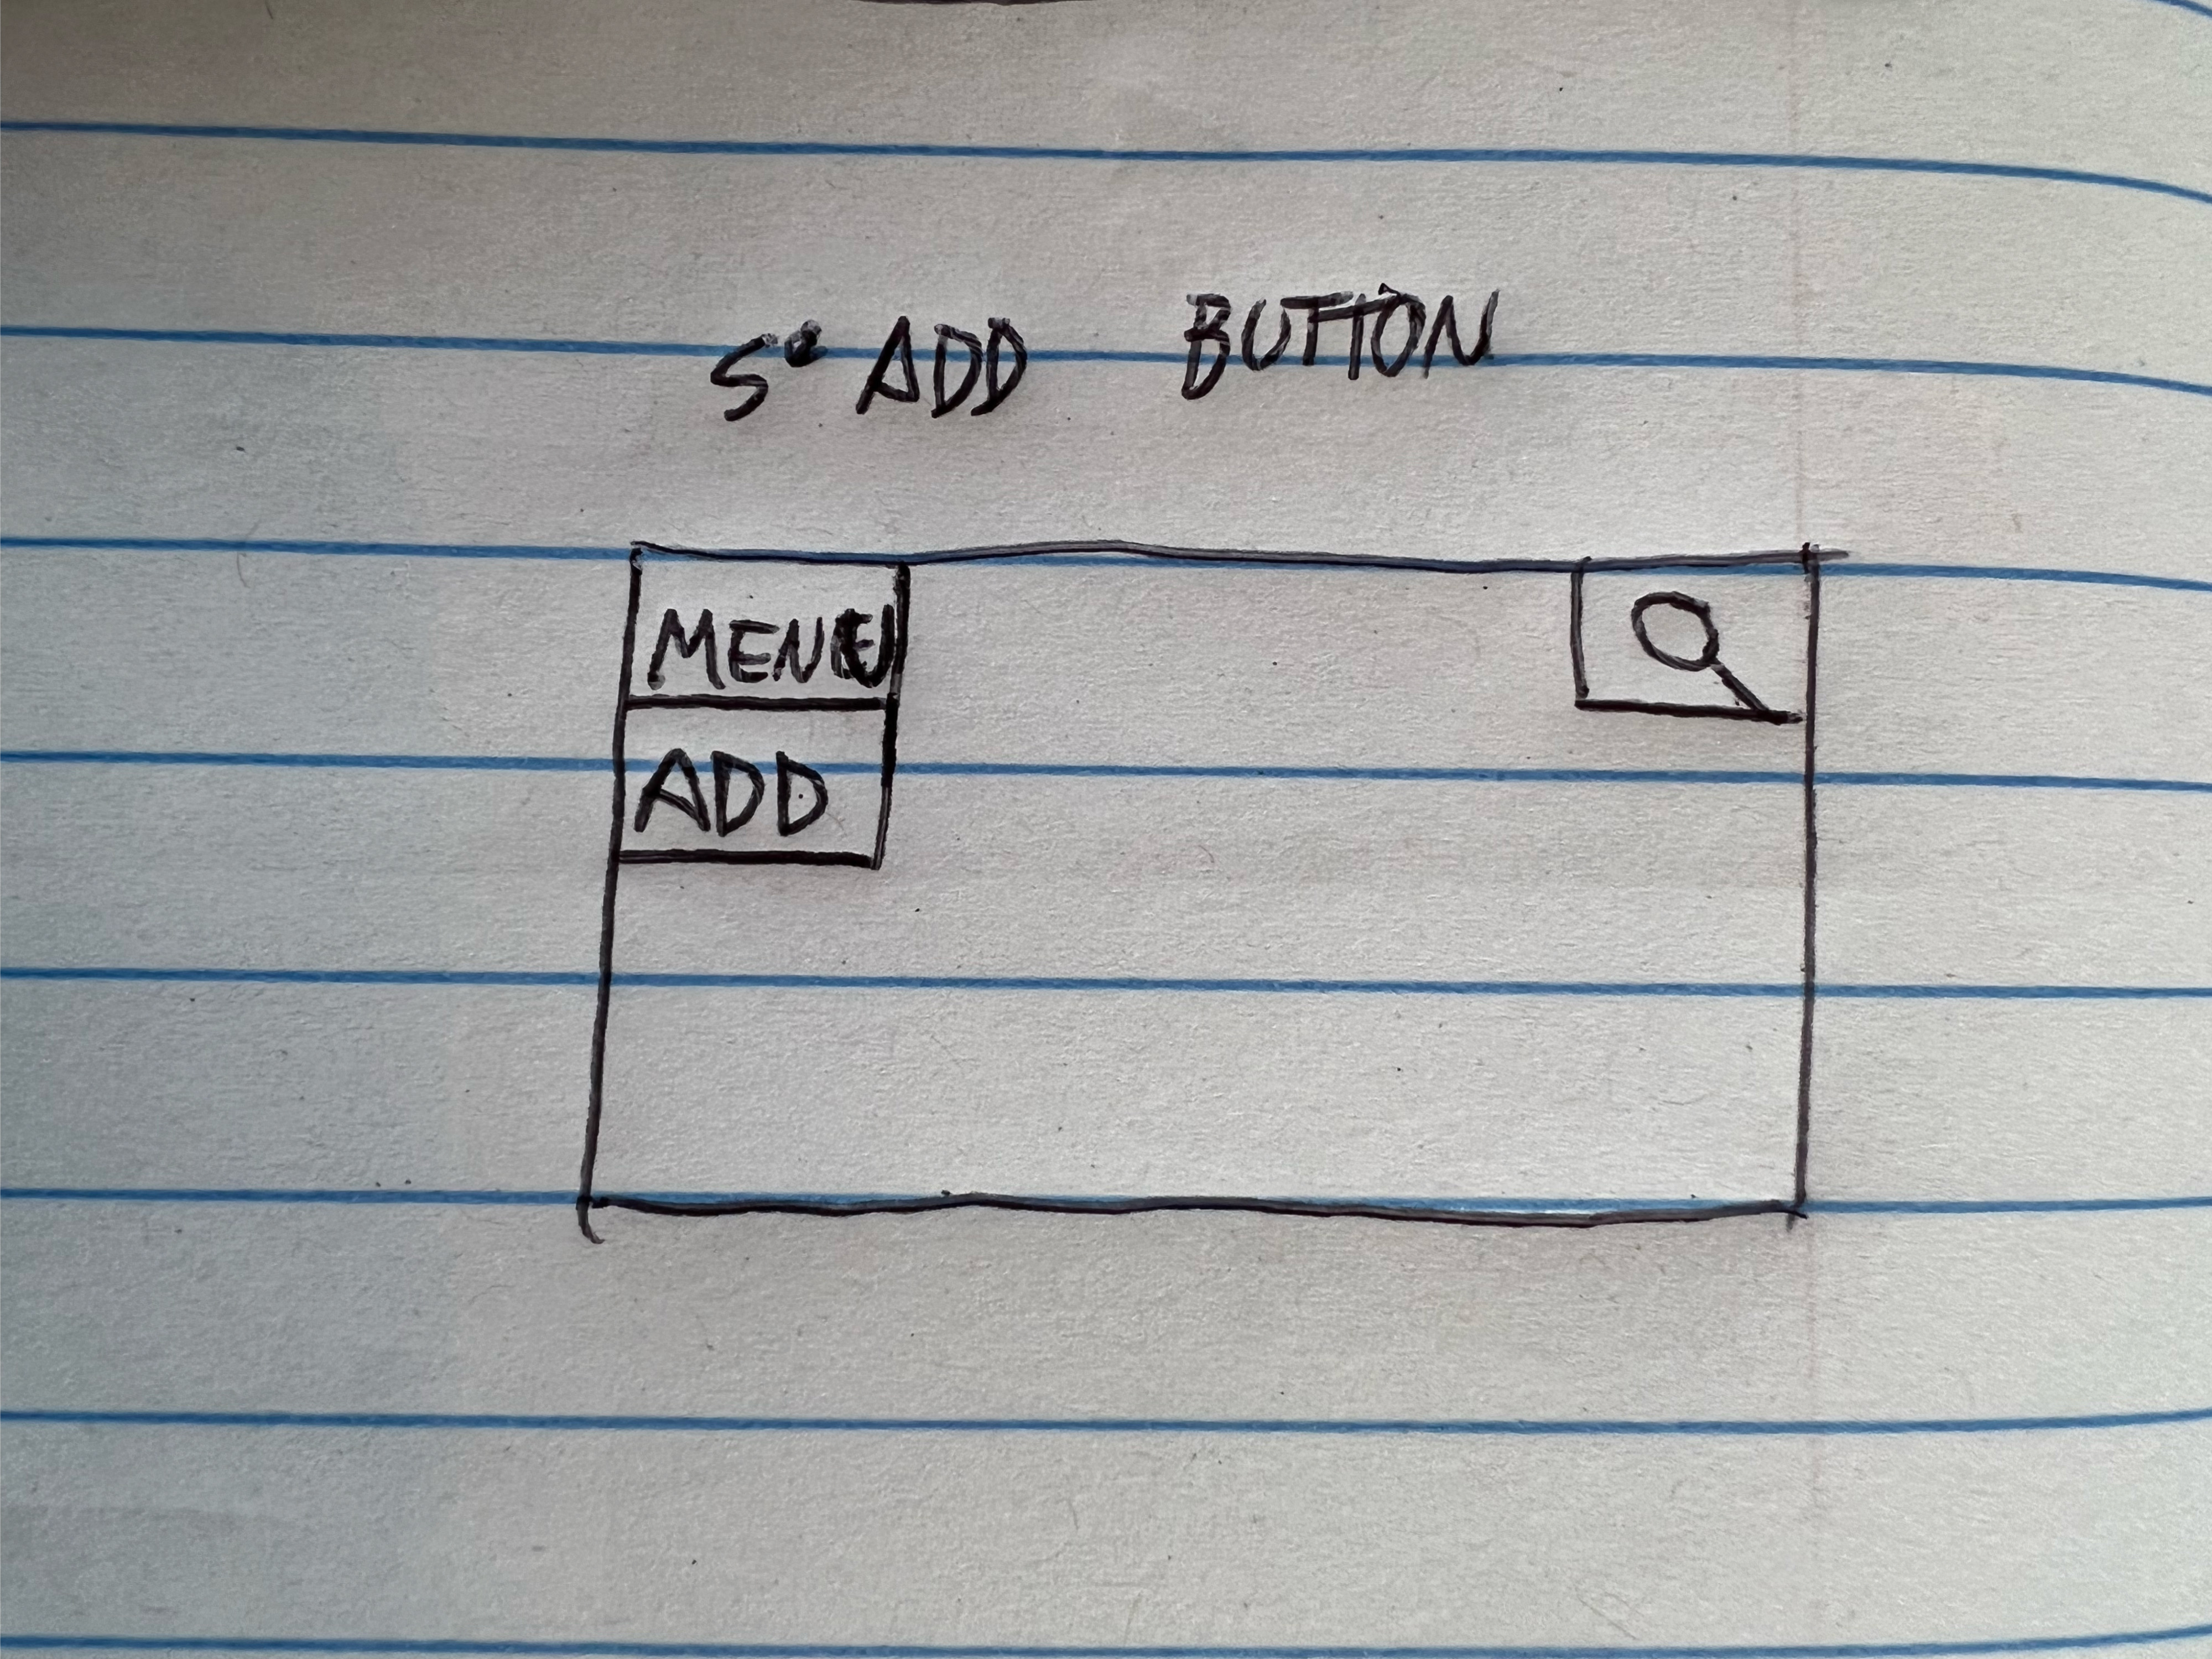 5º ADD BUTTON
MENU
ADD